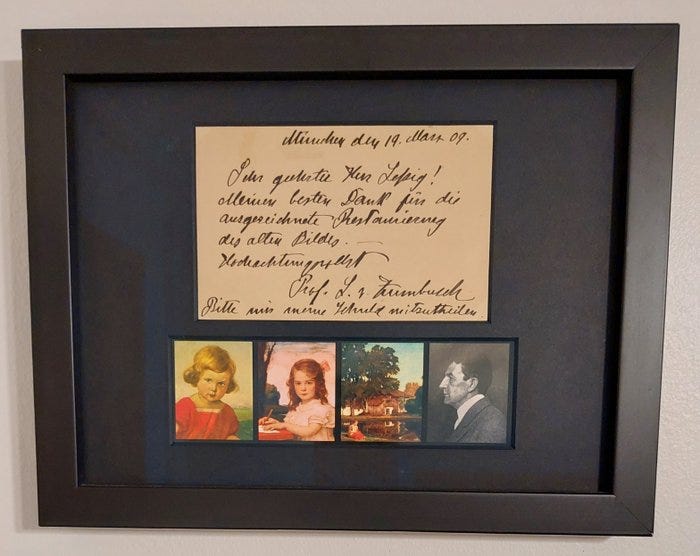 München den 19. März 09.
Sehr geehrter Herr Leßig!
Meinen besten Dank für die
ausgezeichnete Restaurierung
des alten Bildes. —
Hochachtungsvollst
Prof. L. v. Zumbusch
Bitte mir meine Schuld mitzutheilen